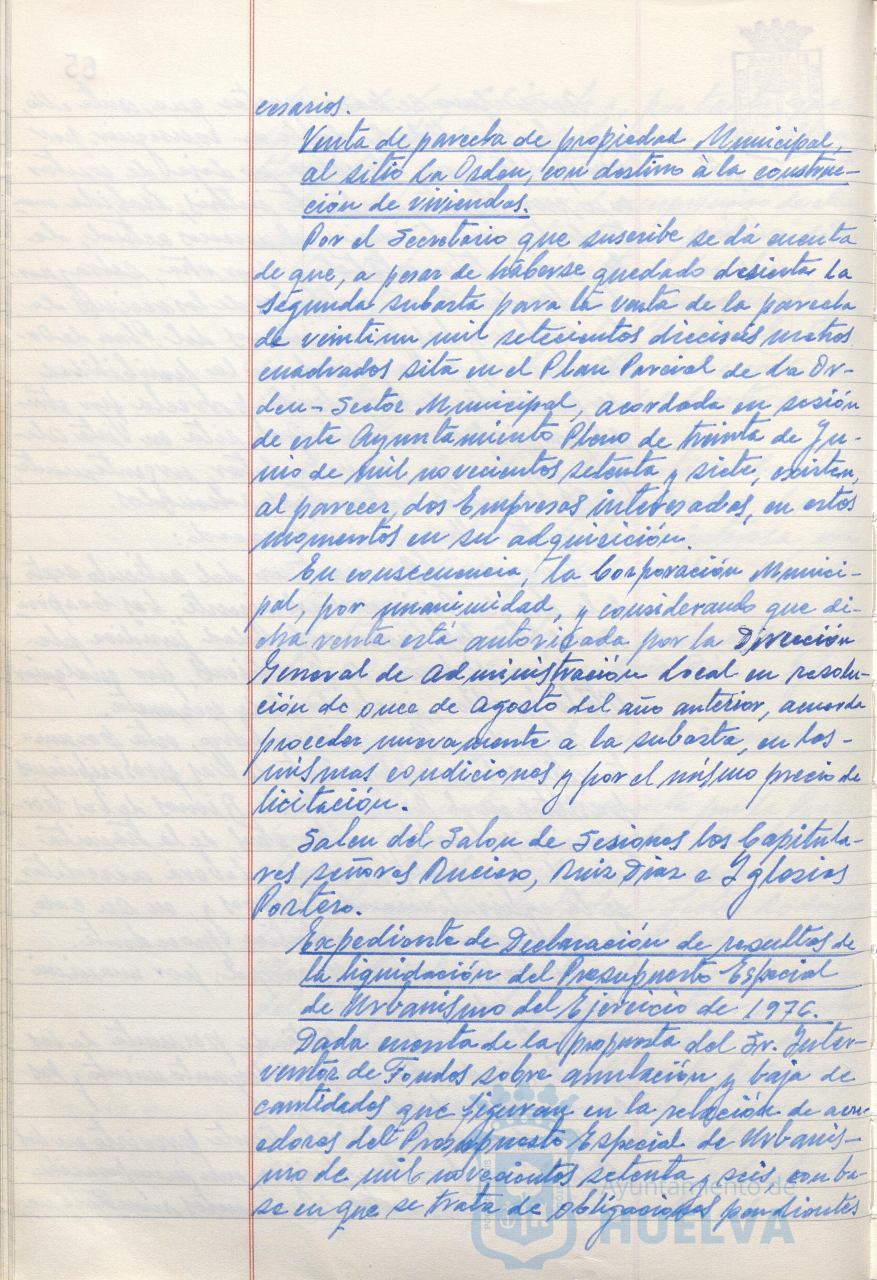 cesarios.
Venta de parcela de propiedad Municipal,
al sitio La Orden, con destino à la construc-
ción de viviendas.
Por el Secretario que suscribe se dá cuenta
de que, a pesar de haberse quedado desierta la
segunda subasta para la venta de la parcela
de veintiun mil setecientos dieciseis metros
cuadrados sita en el Plan Parcial de La Or-
den-Sector Municipal, acordada en sesión
de este Ayuntamiento Pleno de treinta de Ju-
nio de mil novecientos setenta y siete, existen,
al parecer, dos Empresas interesadas, en estos
momentos en su adquisición.
En consecuencia, la Corporación Munici-
pal, por unanimidad, y considerando que di-
cha venta está autorizada por la Dirección
General de Administración Local en resolu-
ción de once de Agosto del año anterior, acuerda
proceder nuevamente a la subasta, en las-
mismas condiciones y por el mismo precio de
licitación.
Salen del Salon de Sesiones los Capitula-
res señores Ruciero, Ruiz Diaz e Yglesias
Portero.
Expediente de Declaración de resultas de
la liquidación del Presupuesto Especial
de Urbanismo del Ejercicio de 1976.
Dada cuenta de la propuesta del Sr. Inter-
ventor de Fondos sobre anulación y baja de
cantidades que figuran en la relación de acre-
edores del Presupuesto Especial de Urbanis-
mo de mil novecientos setenta y seis, con ba-
se en que se trata de obligaciones pendientes
Ayuntamiento de
HUELVA